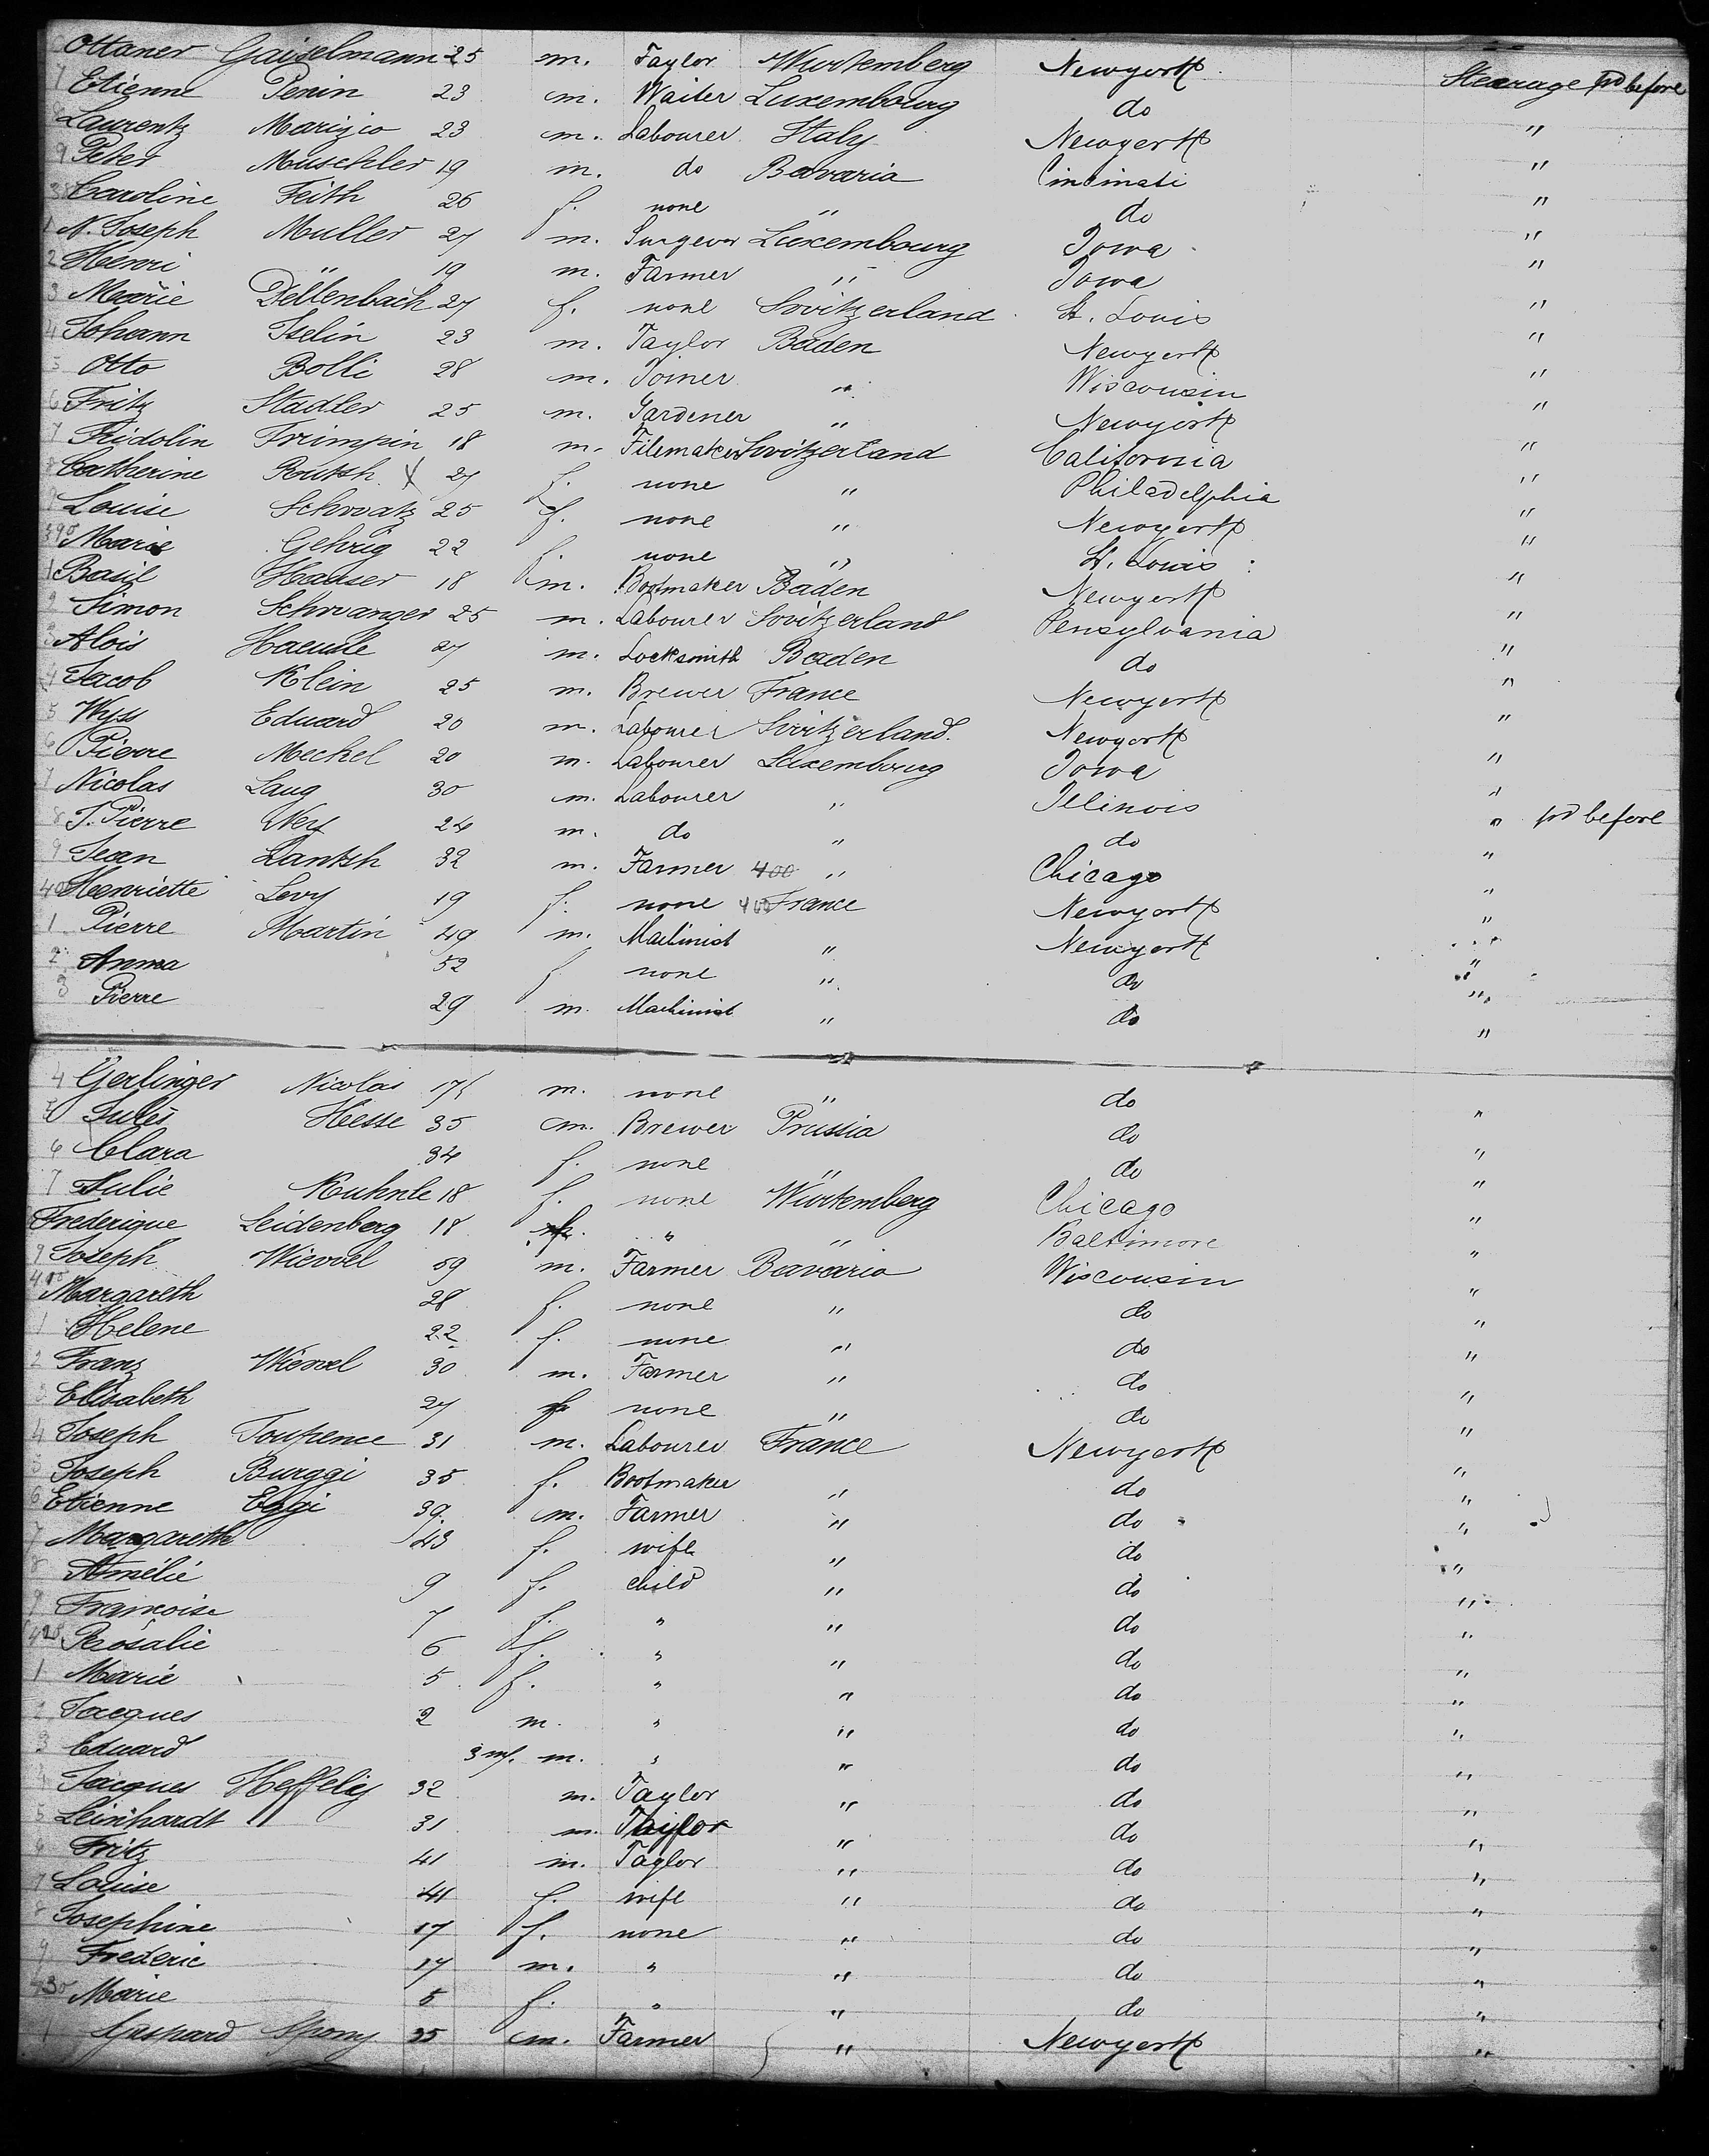 Ottaner Gaiselmann 25 m. Taylor Wurtemberg Newyork Stearage frd before
7 Etienne Penin 23 m. Waiter Luxembourg do "
8 Laurentz Marizio 23 m. Labourer Italy Newyork "
9 Peter Muschler 19 m. do Bavaria Cincinati "
38 Caroline Feith 26 f. none " do "
1 N. Joseph Muller 27 m. Surgeon Luxembourg Iowa "
2 Henri " 19 m. Farmer " Iowa "
3 Marie Dellenbach 27 f. none Switzerland St. Louis "
4 Johann Iselin 23 m. Taylor Baden Newyork "
5 Otto Bolli 28 m. Joiner " Wisconsin "
6 Fritz Stadler 25 m. Gardener " Newyork "
7 Fridolin Frimpin 18 m. Filemaker Switzerland California "
8 Catherine Rutsh X 27 f. none " Philadelphia "
9 Louise Schwatz 25 f. none " Newyork "
390 Marie Gehrig 22 f. none " St. Louis "
1 Basil Hauser 18 m. Bootmaker Baden Newyork "
2 Simon Schwanger 25 m. Labourer Switzerland Pensylvania "
3 Alois Haeusle 27 m. Locksmith Baden do "
4 Jacob Klein 25 m. Brewer France Newyork "
5 Wyss Eduard 20 m. Labourer Switzerland. Newyork "
6 Pierre Meckel 20 m. Labourer Luxembourg Iowa "
7 Nicolas Laug 30 m. Labourer " Illinois "
8 J. Pierre Ney 24 m. do " do " frd before
9 Jean Lantsh 32 m. Farmer 400 " Chicago "
400 Henriette Levy 19 f. none 400 France Newyork "
1 Pierre Martin 49 m. Machinist " Newyork "
2 Anna 52 f none " do "
3 Pierre 29 m. Machinist " do "
4 Gerlinger Nicolas 17 m. none " do "
5 Jules Hesse 35 m. Brewer Prussia do "
6 Clara 34 f. none " do "
7 Julie Kuhnle 18 f. none Wurtemberg Chicago "
Frederique Leidenberg 18 f. " " Baltimore "
9 Joseph Wievel 59 m. Farmer Bavaria Wisconsin "
410 Margareth 28 f. none " do "
1 Helene 22 f. none " do "
2 Franz Wievel 30 m. Farmer " do "
3 Elisabeth 27 f none " do "
4 Joseph Toupence 31 m. Labourer France Newyork "
5 Joseph Burggi 35 f. Bootmaker " do "
6 Etienne Eggi 39. m. Farmer " do "
7 Margareth 43 f. wife " do "
8 Amélie 9 f. child " do "
9 Francoise 7 f. " " do "
420 Rosalie 6 f. " " do "
1 Marie 5 f. " " do "
2 Jacques 2 m. " " do "
3 Eduard 3 m. " " do "
4 Jacques Heffeley 32 m. Taylor " do "
5 Leinhardt 31 m. Taylor " do "
6 Fritz 41 m. Taylor " do "
7 Louise 41 f. wife " do "
8 Josephine 17 f. none " do "
9 Frederic 17 m. " " do "
430 Marie 5 f. " " do "
1 Gaspard Spony 35 m. Farmer " Newyork "